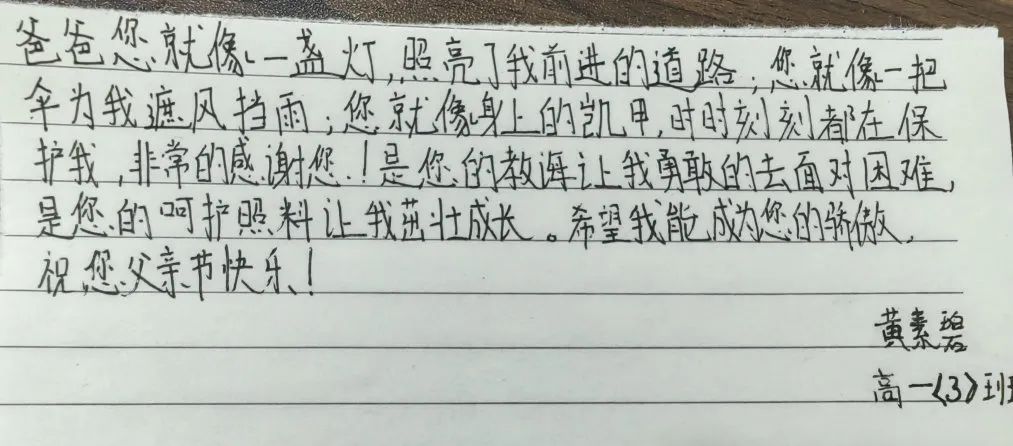 爸爸您就像一盏灯,照亮了我前进的道路;您就像一把
伞为我遮风挡雨;您就像身上的凯甲,时时刻刻都在保
护我,非常的感谢您!是您的教诲让我勇敢的去面对困难,
是您的呵护照料让我茁壮成长。希望我能成为您的骄傲,
祝您父亲节快乐!
黄素碧
高一(3)班